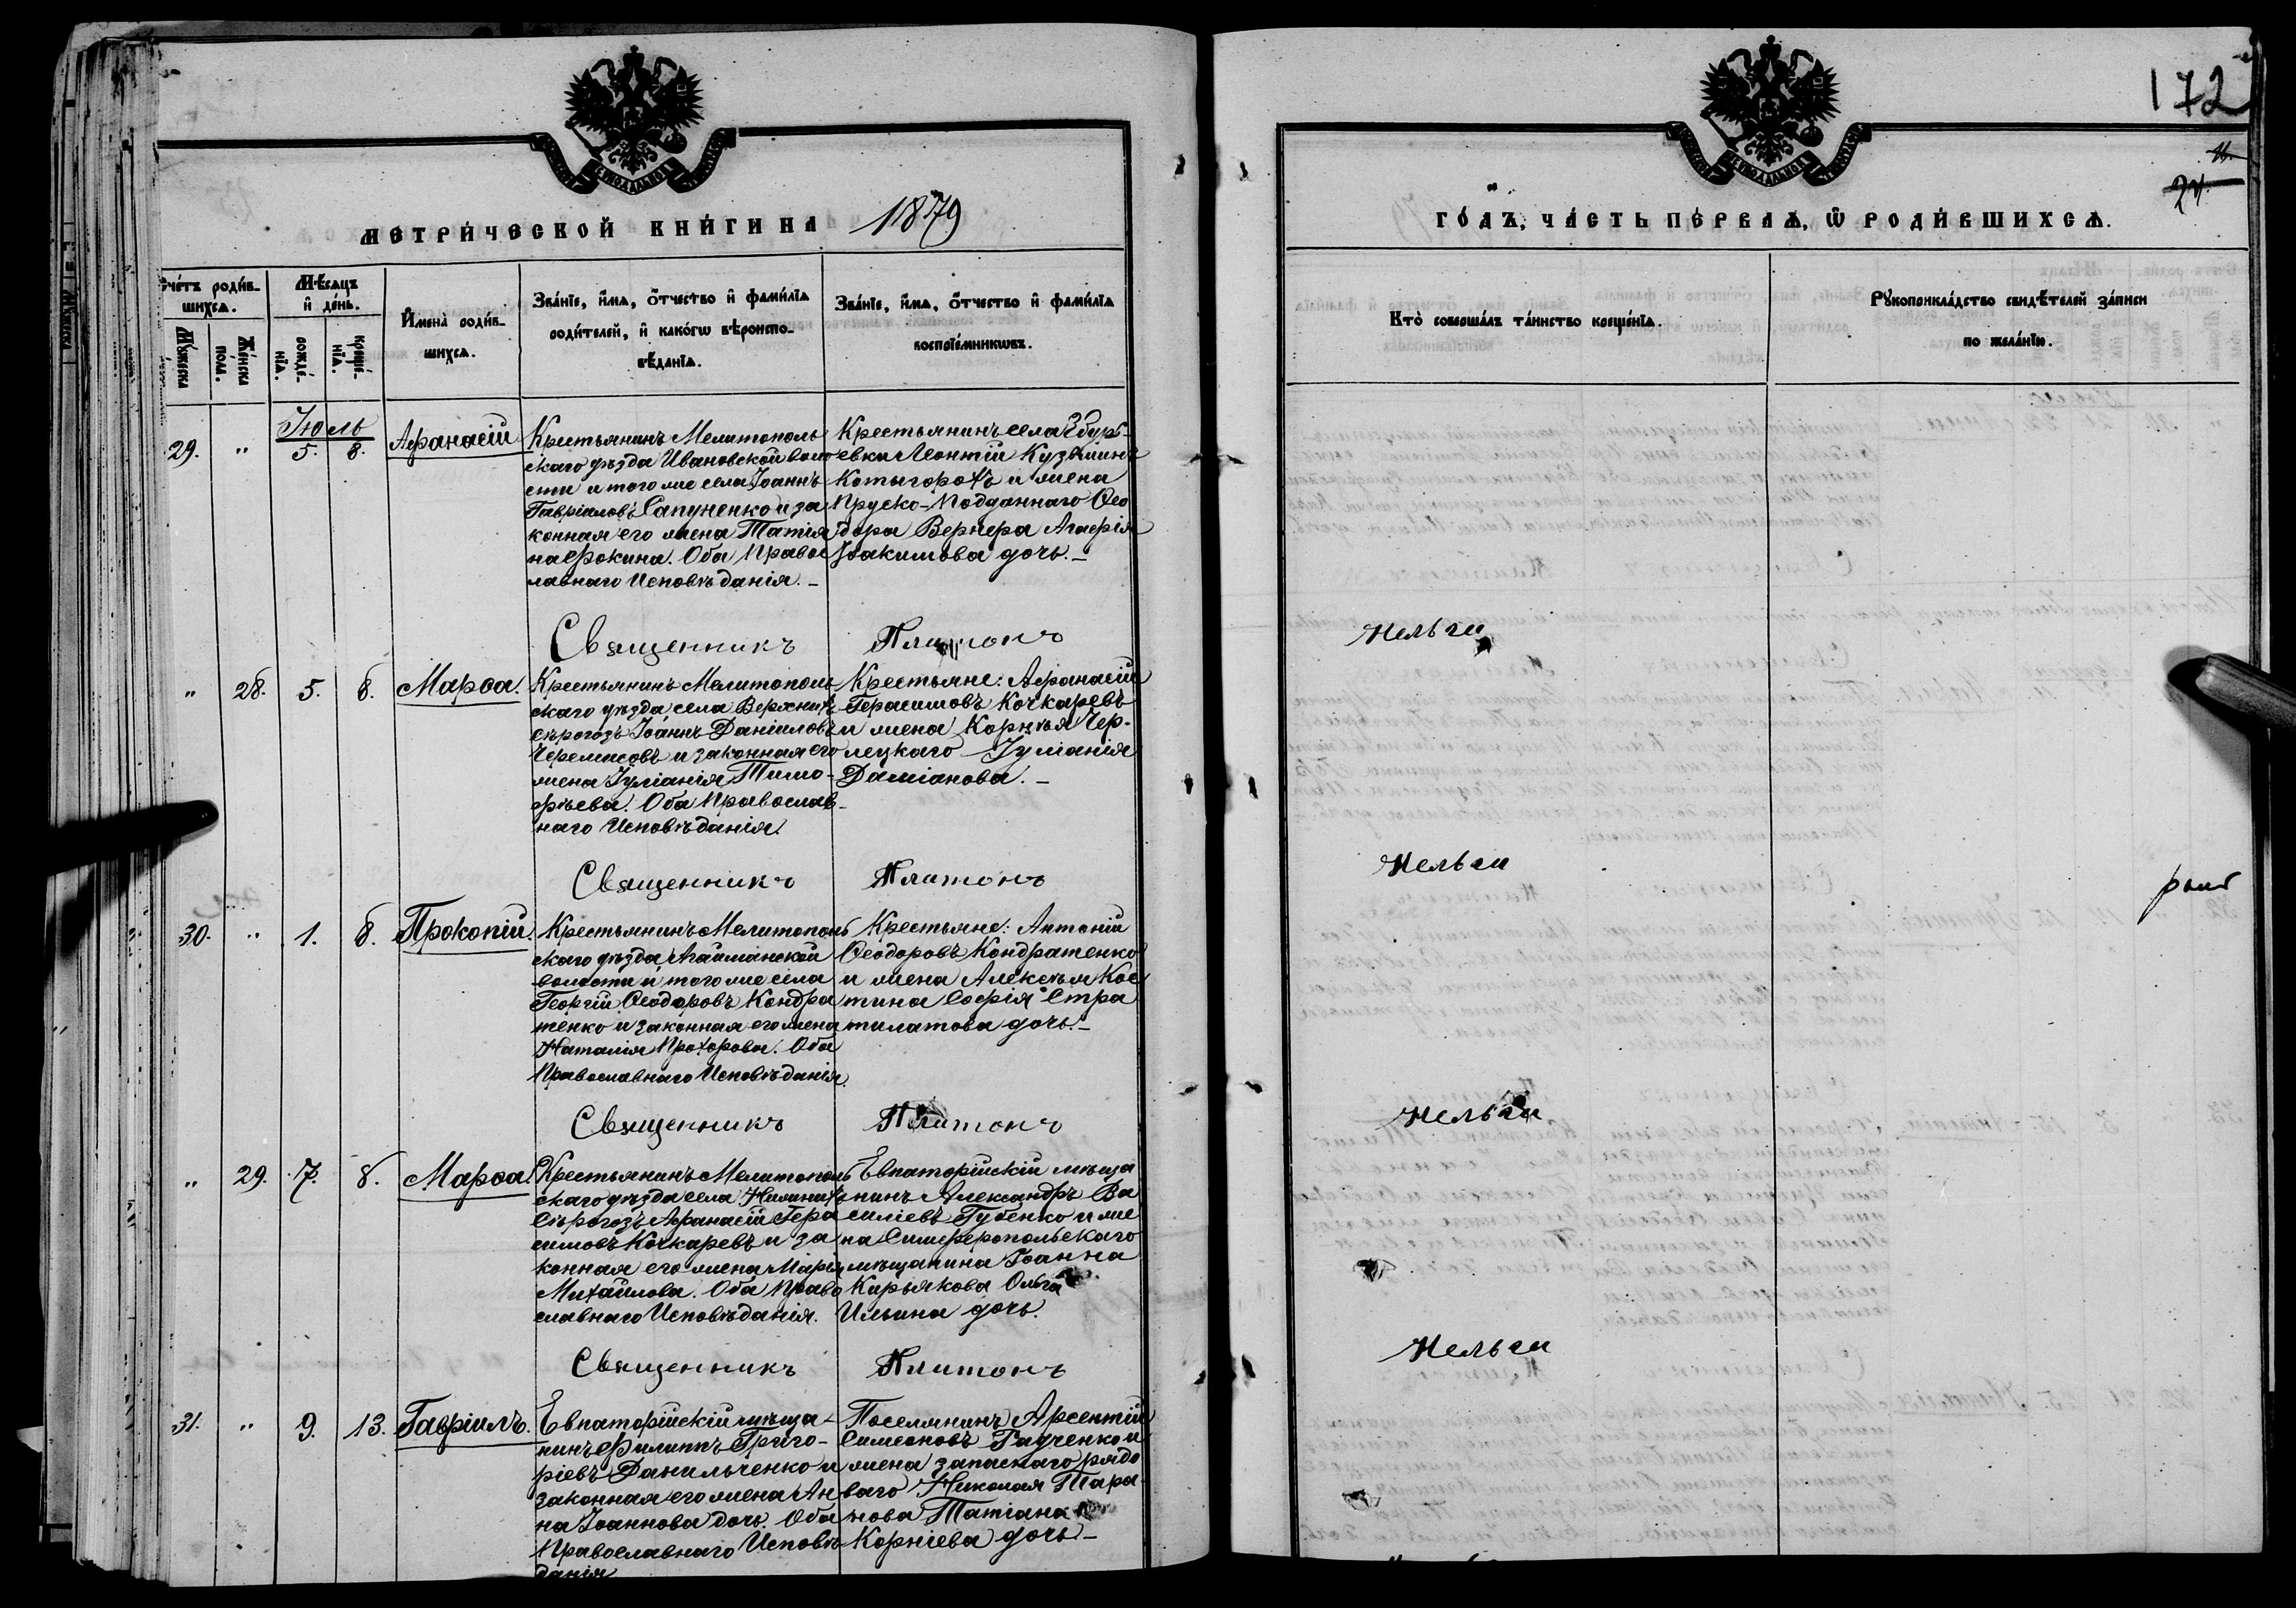 172
24.
МЕТРИ́ЧЕСКОЙ КНИ́ГИ НА 1879
ГО́ДЪ, ЧА́СТЬ ПЕ́РВАѦ, Ѿ РОДИ́ВШИХСѦ.
Сче́тъ роди́в-
шихсѧ.
Му́жеска
пола.
Же́нска
пола.
Мѣ́сѧцъ
и де́нь.
рожде́-
нїѧ.
креще́-
нїѧ.
Имена̀ роди́в-
шихсѧ.
Зва́нїе, и́мѧ, о́тчество и фами́лїѧ
роди́телей, и како́гѡ вѣроиспо-
вѣ́данїѧ.
Зва́нїе, и́мѧ, о́тчество и фами́лїѧ
воспрїе́мникѡвъ.
Кто̀ соверша́лъ та́инство креще́нїѧ.
Рꙋкоприкла́дство свидѣ́телей за́писи
по жела́нїю.
Іюль
29. " 5. 8. Аѳанасій
Крестьянинъ Мелитополь
скаго уѣзда Ивановской воло
сти и того же села Іоаннъ
Гавріиловъ Сапуненко и за
конная его жена Татія
на Фокина. Оба Правос
лавнаго Исповѣданія. –
Крестьянинъ села Збурь-
евки Леонтій Кузьминъ
Котыгорохъ и жена
Пруско-Подданнаго Ѳео
дора Вернера Агафія
Іоакимова дочь. –
Священникъ Платонъ Мельги
" 28. 5. 8. Марѳа.
Крестьянинъ Мелитополь
скаго уѣзда села Верхнихъ
Сѣрогозъ Іоаннъ Даніиловъ
Черемисовъ и законная его
жена Іуліанія Тимо-
фѣева. Оба Православ-
наго Исповѣданія.
Крестьяне: Аѳанасій
Герасимовъ Кочкаревъ
и жена Корнѣя Чер-
лецкаго Іуліанія
Даміанова. –
Священникъ Платонъ Мельги
30. " 1. 8. Прокопій.
Крестьянинъ Мелитополь
скаго уѣзда Агайманской
волости и того же села
Георгій Ѳеодоровъ Кондра
тенко и законная его жена
Наталія Прохорова. Оба
Православнаго Исповѣданія.
Крестьяне: Антоній
Ѳеодоровъ Кондратенко
и жена Алексѣя Кос
тина Софія Стра
тилатова дочь. –
Священникъ Платонъ Мельги
" 29. 7. 8. Марѳа.
Крестьянинъ Мелитополь
скаго уѣзда села Нижнихъ
Сѣрогозъ Аѳанасій Гера
симовъ Кочкаревъ и за
конная его жена Марія
Михайлова. Оба Право
славнаго Исповѣданія.
Евпаторійскій мѣща
нинъ Александръ Ва
силіевъ Губенко и же
на Симферопольскаго
мѣщанина Іоанна
Кирьякова Ольга
Ильина дочь.
Священникъ Платонъ Мельги
31. " 9. 13. Гавріилъ.
Евпаторійскій мѣща-
нинъ Филиппъ Григо-
ріевъ Данильченко и
законная его жена Ан
на Іоаннова дочь. Оба
Православнаго Исповѣ
данія
Поселянинъ Арсентій
Симеоновъ Радченко и
жена запаснаго рядо
ваго Николая Тара-
нова Татіана
Корніева дочь –